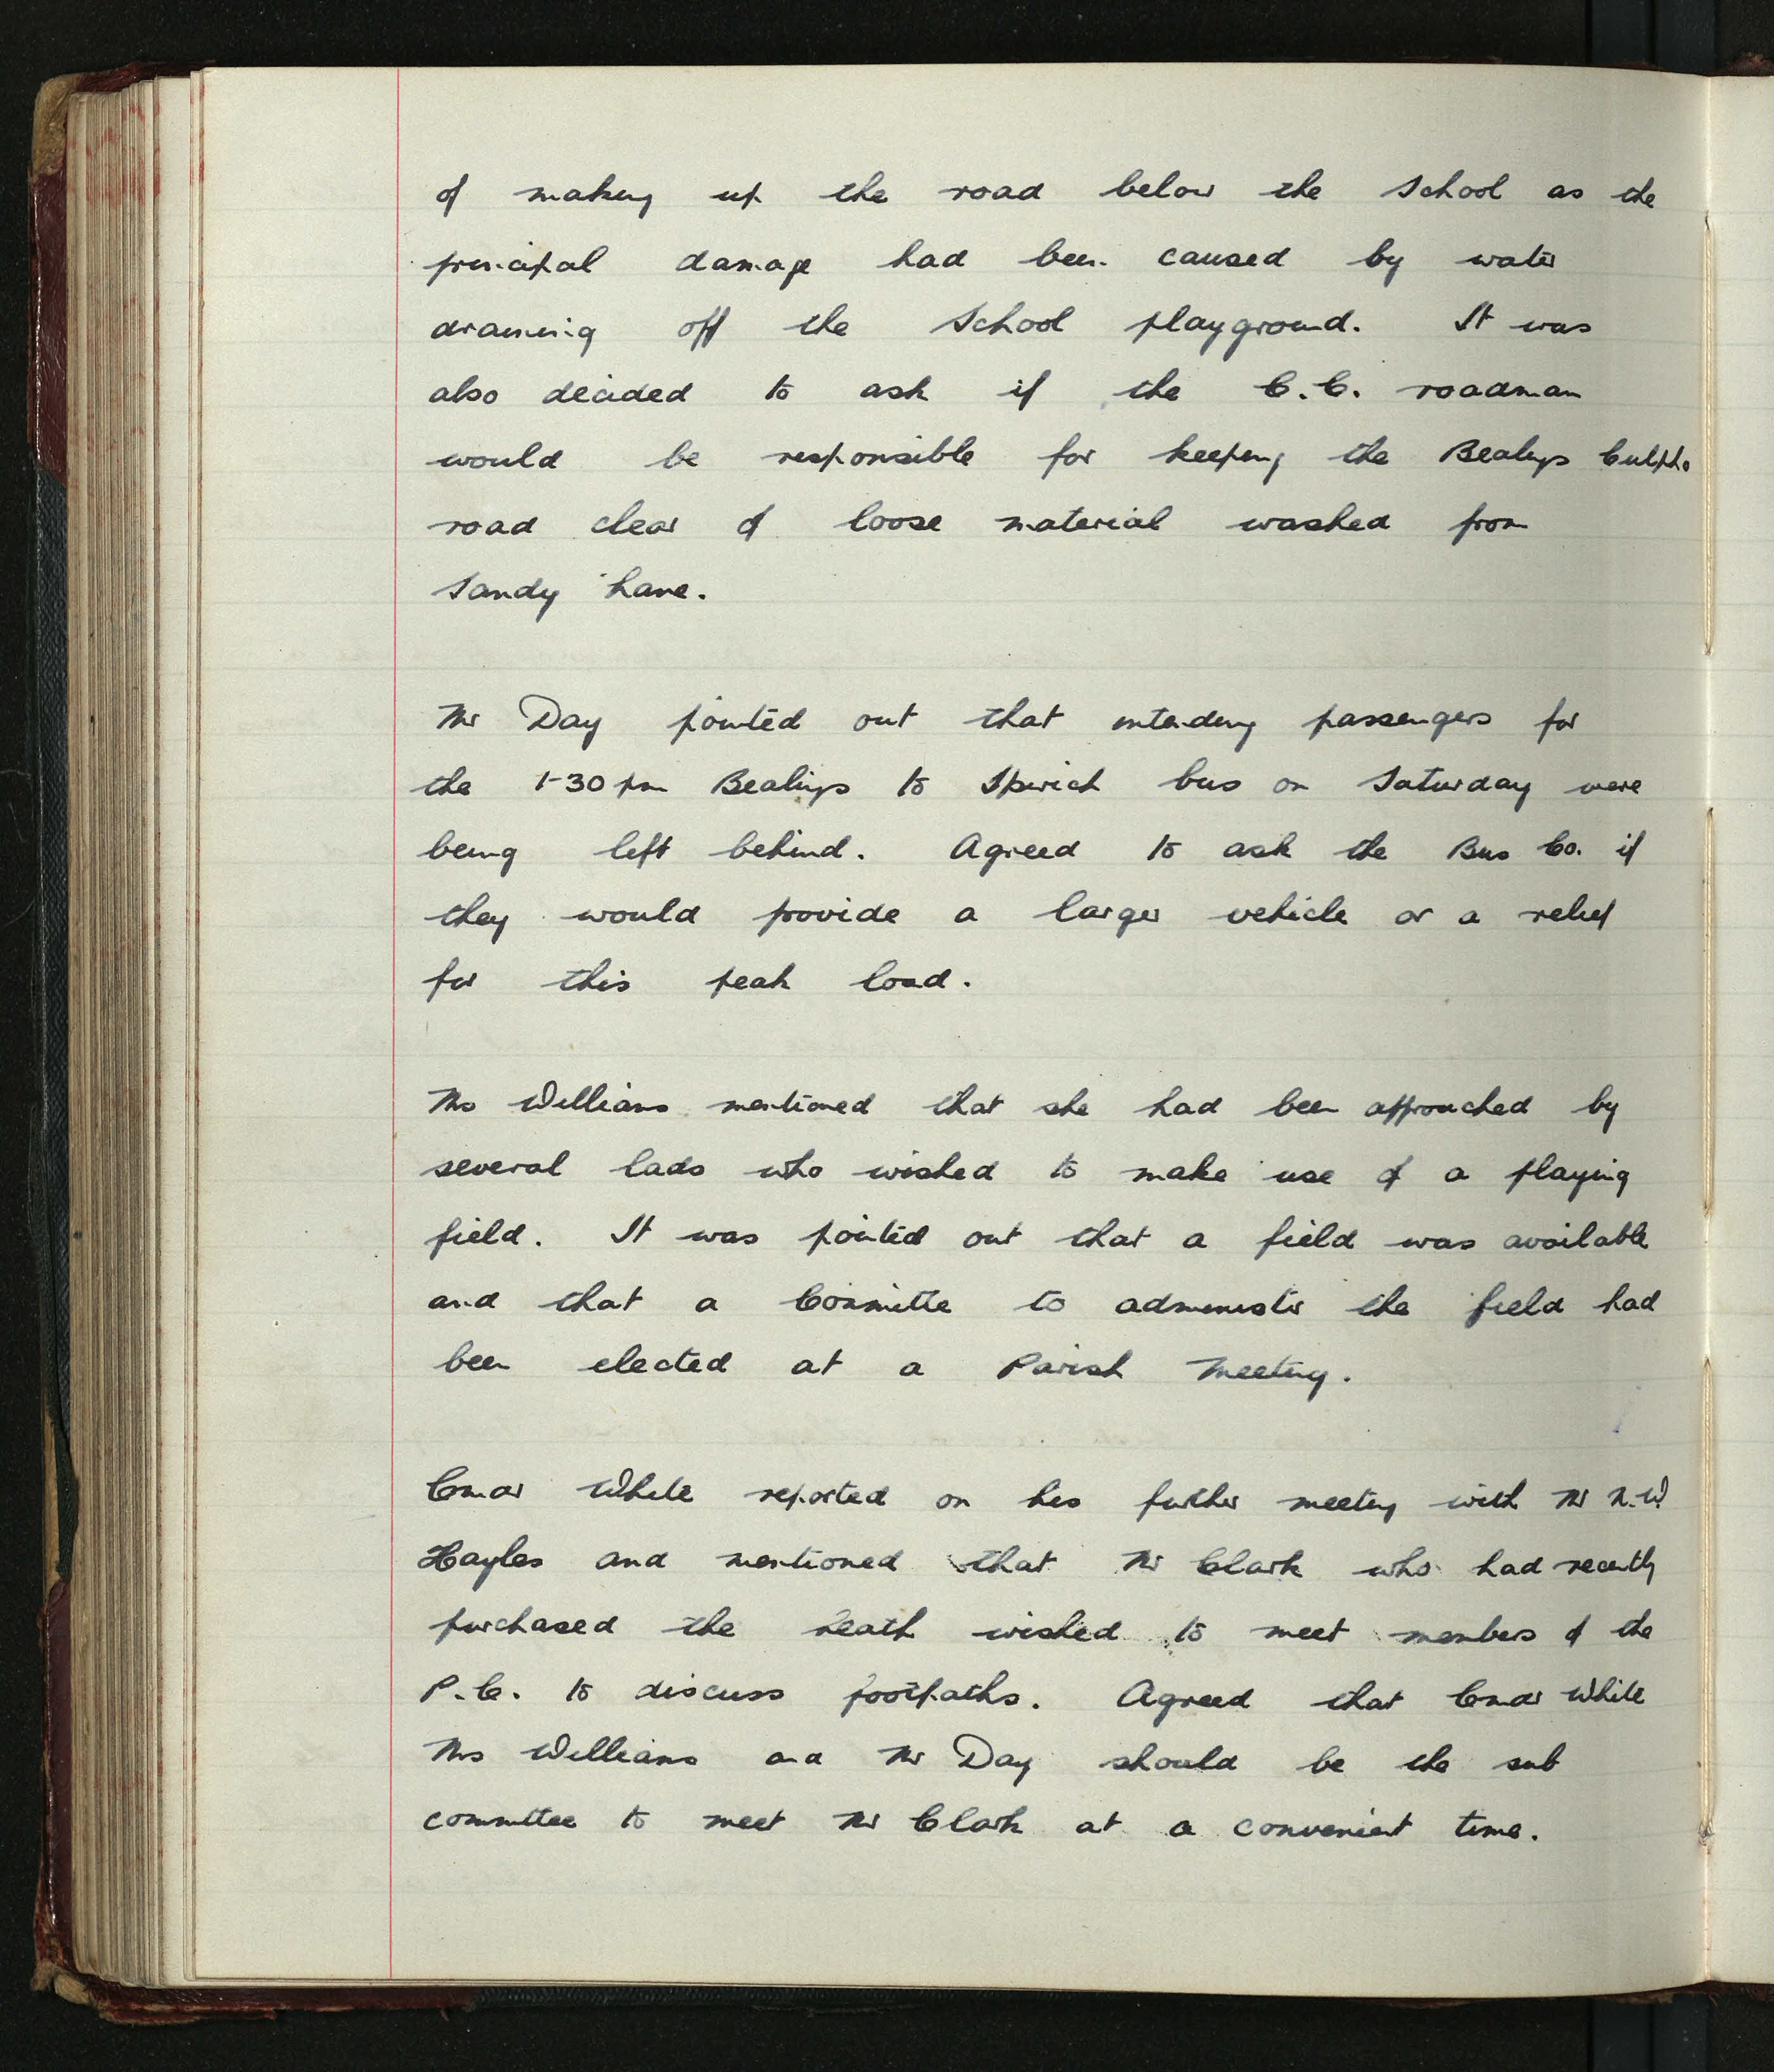 of making up the road below the School as the
principal damage had been caused by water
draining off the School playground. It was
also decided to ask if the C.C. roadman
would be responsible for keeping the Bealings Culpho
road clear of loose material washed from
Sandy Lane.
Mr Day pointed out that intending passengers for
the 1-30 pm Bealings to Ipswich bus on Saturday were
being left behind. Agreed to ask the Bus Co. if
they would provide a larger vehicle or a relief
for this peak load.
Mrs Williams mentioned that she had been approached by
several lads who wished to make use of a playing
field. It was pointed out that a field was available
and that a Committee to administer the field had
been elected at a Parish Meeting.
Cmdr White reported on his further meeting with Mr N.W.
Hayles and mentioned that Mr Clark who had recently
purchased the heath wished to meet members of the
P.C. to discuss footpaths. Agreed that Cmdr White
Mrs Williams and Mr Day should be the sub
committee to meet Mr Clark at a convenient time.